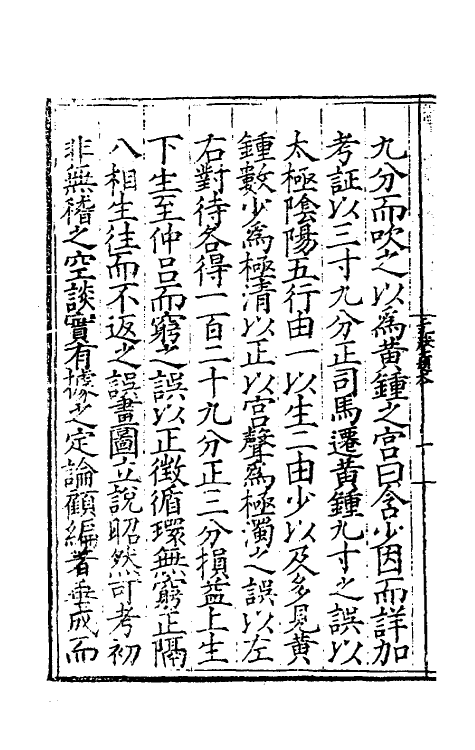 九分而吹之以爲黃鍾之宮曰含少因而詳加
考証以三寸九分正司馬遷黃鍾九寸之誤以
太極陰陽五行由一以生二由少以及多見黃
鍾數少爲極清以正以宮聲爲極濁之誤以左
右對待各得一百二十九分正三分損益上生
下生至仲呂而窮之誤以正徴循環無窮正隔
八相生往而不返之誤畫圖立說昭然可考初
非無稽之空談實有㨿之定論顧編著垂成而